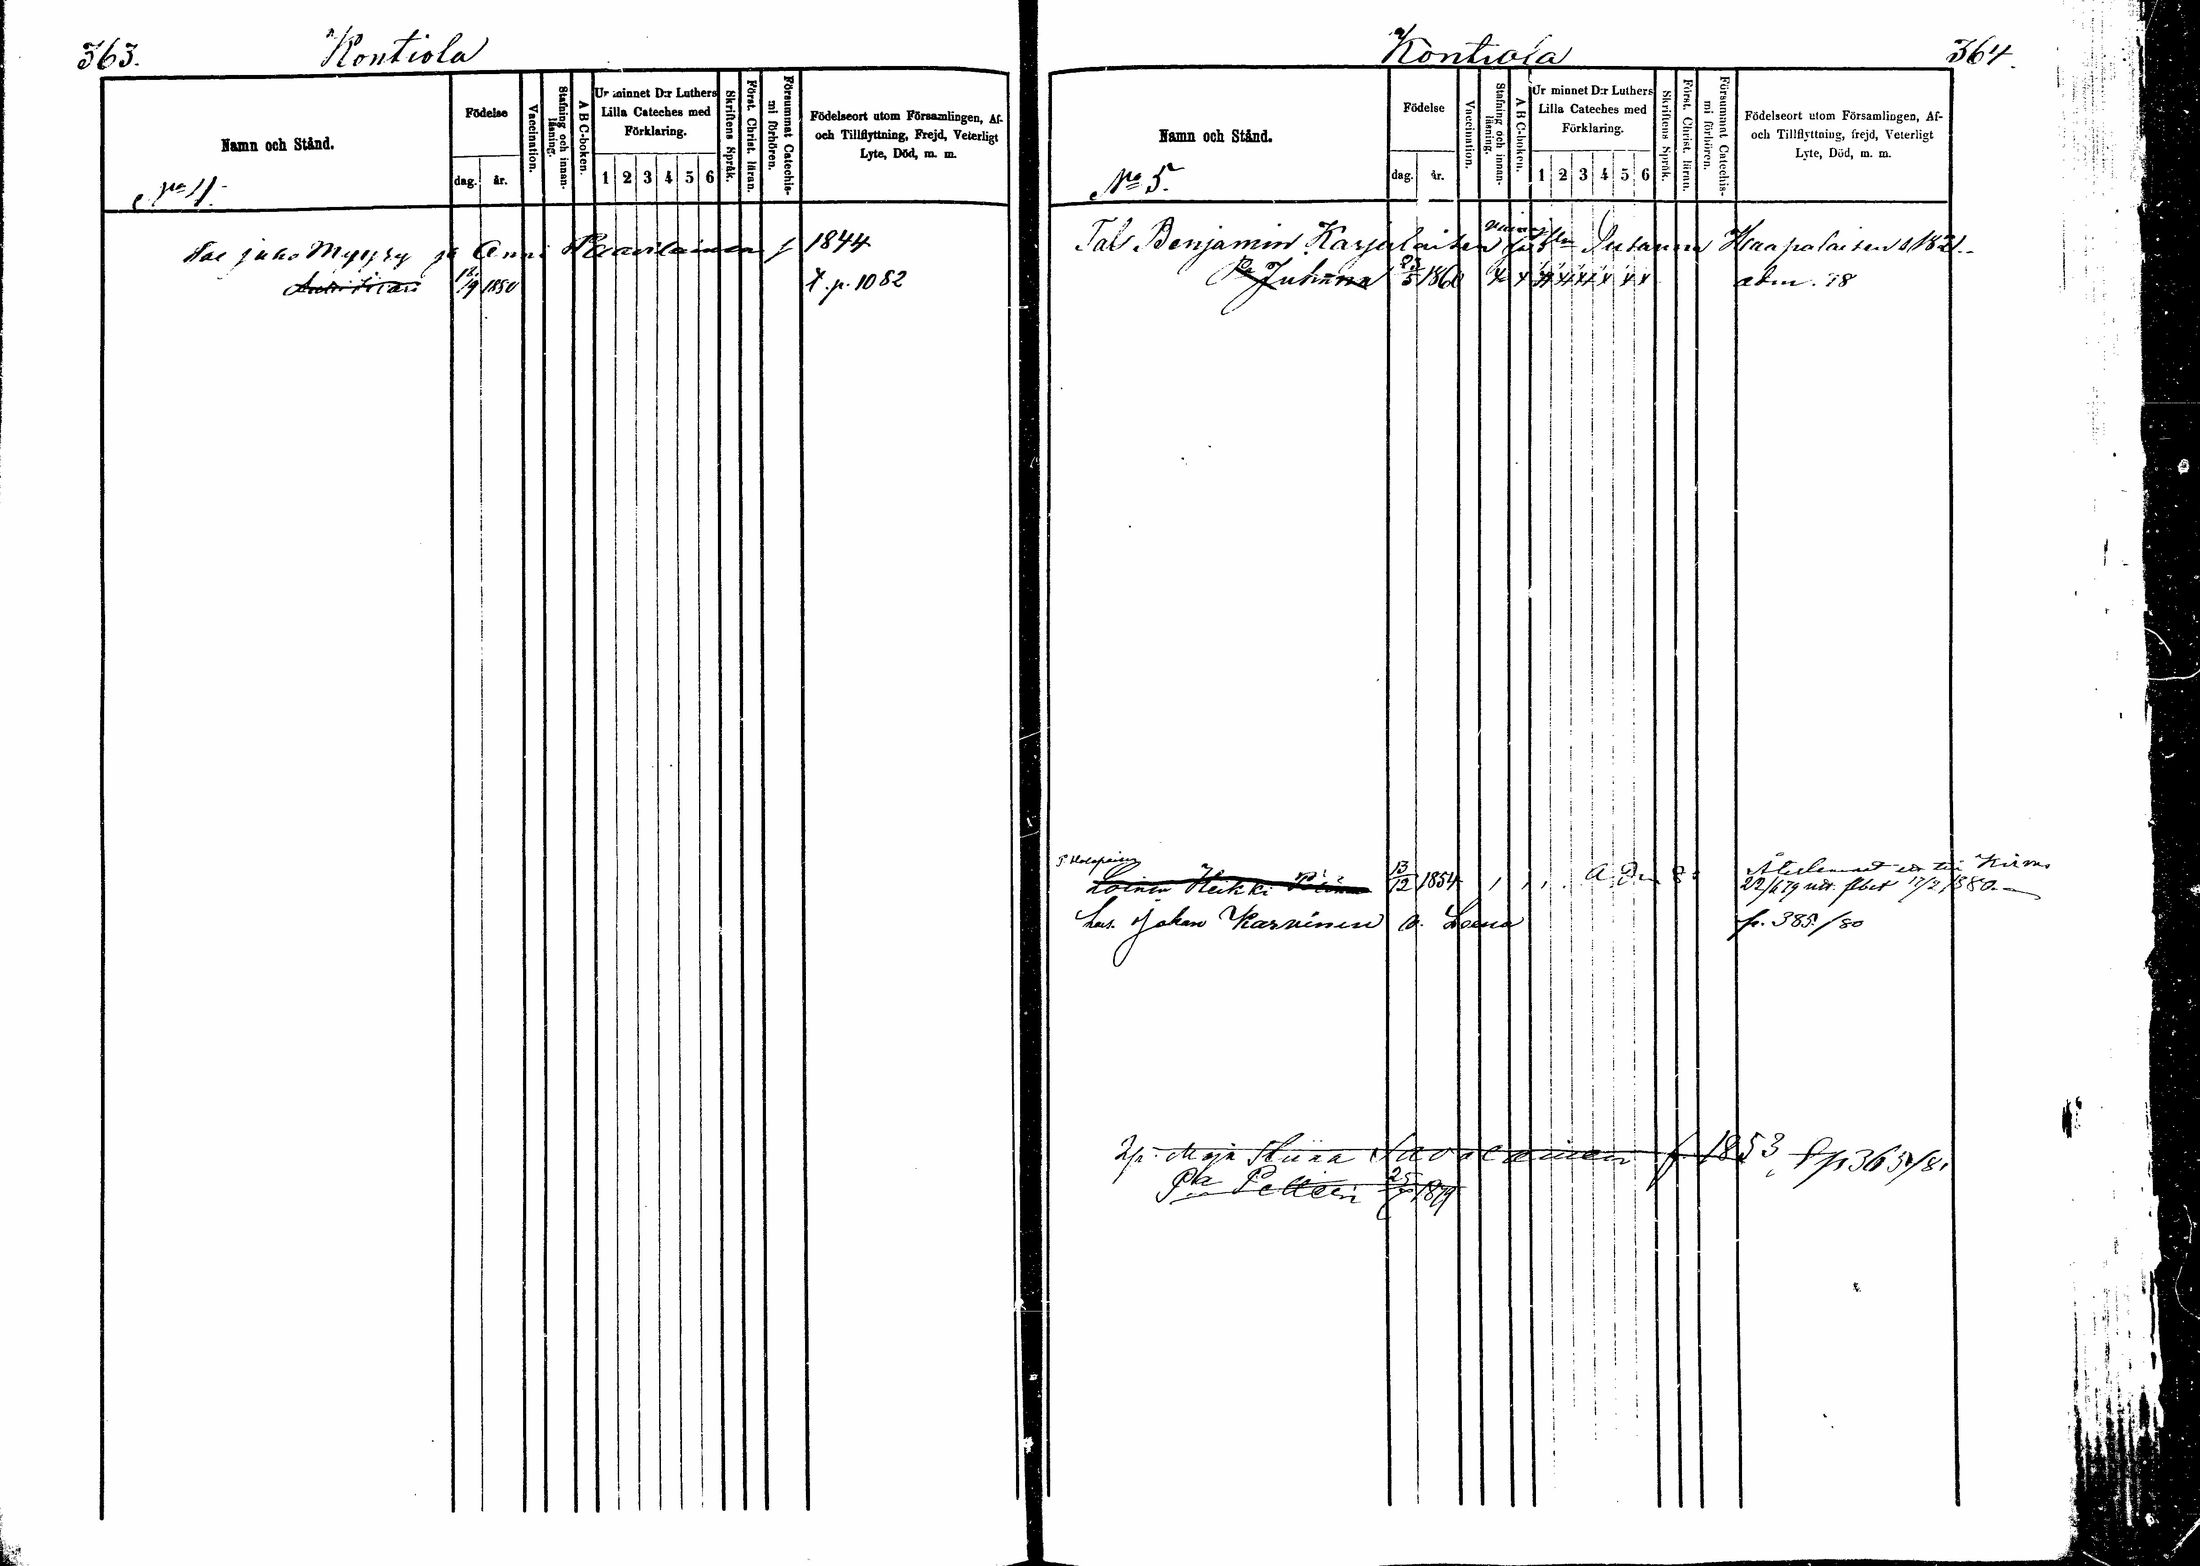 363.
Kontiola
Namn och Stånd.
No 4.
Födelse
dag.
år.
Vaccination.
Stafning och innan-
läsning.
A B C-boken.
Ur minnet D:r Luthers
Lilla Cateches med
Förklaring.
1 2 3 4 5 6
Skriftens Språk.
Först. Christ. läran.
Försummat Catechis-
mi förhören.
Födelseort utom Församlingen, Af-
och Tillflyttning, Frejd, Veterligt
Lyte, Död, m. m.
Juho Myyry ja Anni Paavilainen f 1844
1850 p. 1082
Kontiola
364.
Namn och Stånd.
No 5.
Födelse
dag.
år.
Vaccination.
Stafning och innan-
läsning.
A B C-boken.
Ur minnet D:r Luthers
Lilla Cateches med
Förklaring.
1 2 3 4 5 6
Skriftens Språk.
Först. Christ. läran.
Försummat Catechis-
mi förhören.
Födelseort utom Församlingen, Af-
och Tillflyttning, frejd, Veterligt
Lyte, Död, m. m.
Tal. Benjamin Karjalaisen Susanna Haapalaisen
Juhana 23/5 1860 x x x x x x x x adm. 78
Loinen Heikki 13/12 1854
Johan Karvinen o. Leena p. 385/80
Maja Stiina Savolainen f. 1853 p 363/81
Pa Petteri 1879